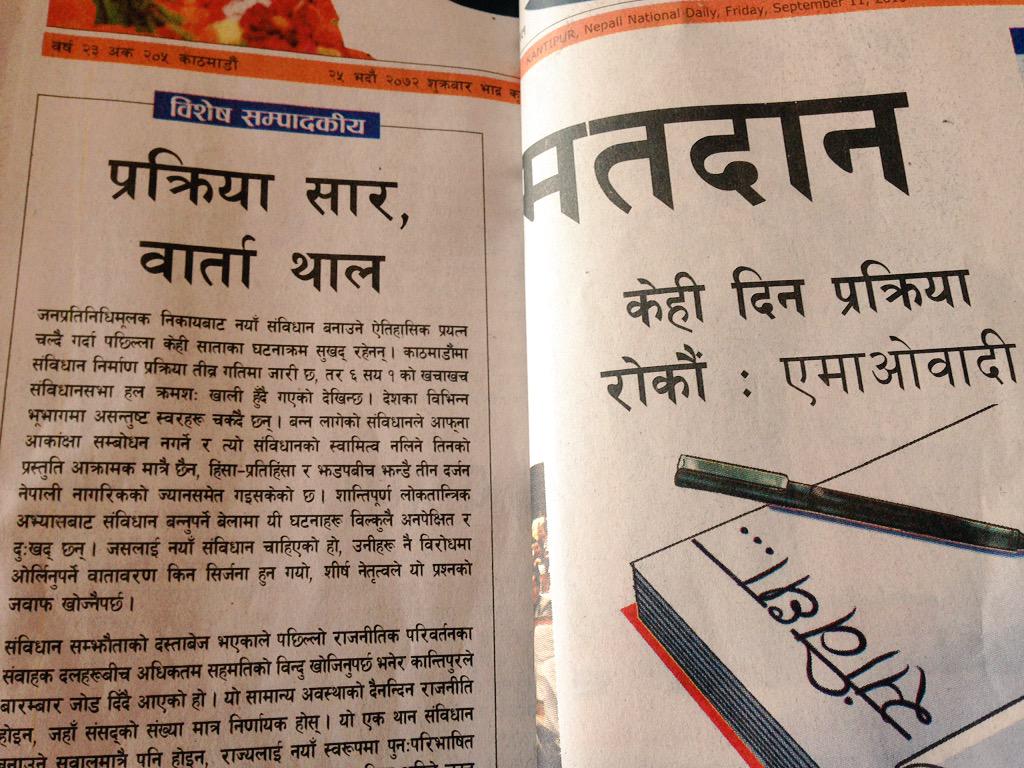 वर्ष २३ अंक २०५ काठमाडौं
२५ भदौ २०७२ शुक्रबार भाद्र
विशेष सम्पादकीय
प्रक्रिया सार,
वार्ता थाल
जनप्रतिनिधिमूलक निकायबाट नयाँ संविधान बनाउने ऐतिहासिक प्रयत्न
चल्दै गर्दा पछिल्ला केही साताका घटनाक्रम सुखद् रहेनन् । काठमाडौंमा
संविधान निर्माण प्रक्रिया तीव्र गतिमा जारी छ, तर ६ सय १ को खचाखच
संविधानसभा हल क्रमशः खाली हुँदै गएको देखिन्छ । देशका विभिन्न
भूभागमा असन्तुष्ट स्वरहरू चर्कंदै छन् । बन्न लागेको संविधानले आफ्ना
आकांक्षा सम्बोधन नगर्ने र त्यो संविधानको स्वामित्व नलिने तिनको
प्रस्तुति आक्रामक मात्रै छैन, हिंसा-प्रतिहिंसा र झडपबीच झन्डै तीन दर्जन
नेपाली नागरिकको ज्यानसमेत गइसकेको छ । शान्तिपूर्ण लोकतान्त्रिक
अभ्यासबाट संविधान बन्नुपर्ने बेलामा यी घटनाहरू विल्कुलै अनपेक्षित र
दुःखद् छन् । जसलाई नयाँ संविधान चाहिएको हो, उनीहरू नै विरोधमा
ओर्लिनुपर्ने वातावरण किन सिर्जना हुन गयो, शीर्ष नेतृत्वले यो प्रश्नको
जवाफ खोज्नैपर्छ ।
संविधान सम्झौताको दस्ताबेज भएकाले पछिल्लो राजनीतिक परिवर्तनका
संवाहक दलहरूबीच अधिकतम सहमतिको विन्दु खोजिनुपर्छ भनेर कान्तिपुरले
बारम्बार जोड दिँदै आएको हो । यो सामान्य अवस्थाको दैनन्दिन राजनीति
होइन, जहाँ संसद्को संख्या मात्र निर्णायक होस् । यो एक थान संविधान
बनाउने सवालमात्रै पनि होइन, राज्यलाई नयाँ स्वरूपमा पुनःपरिभाषित
KANTIPUR, Nepali National Daily, Friday, September 11,
मतदान
केही दिन प्रक्रिया
रोकौं : एमाओवादी
संविधा...